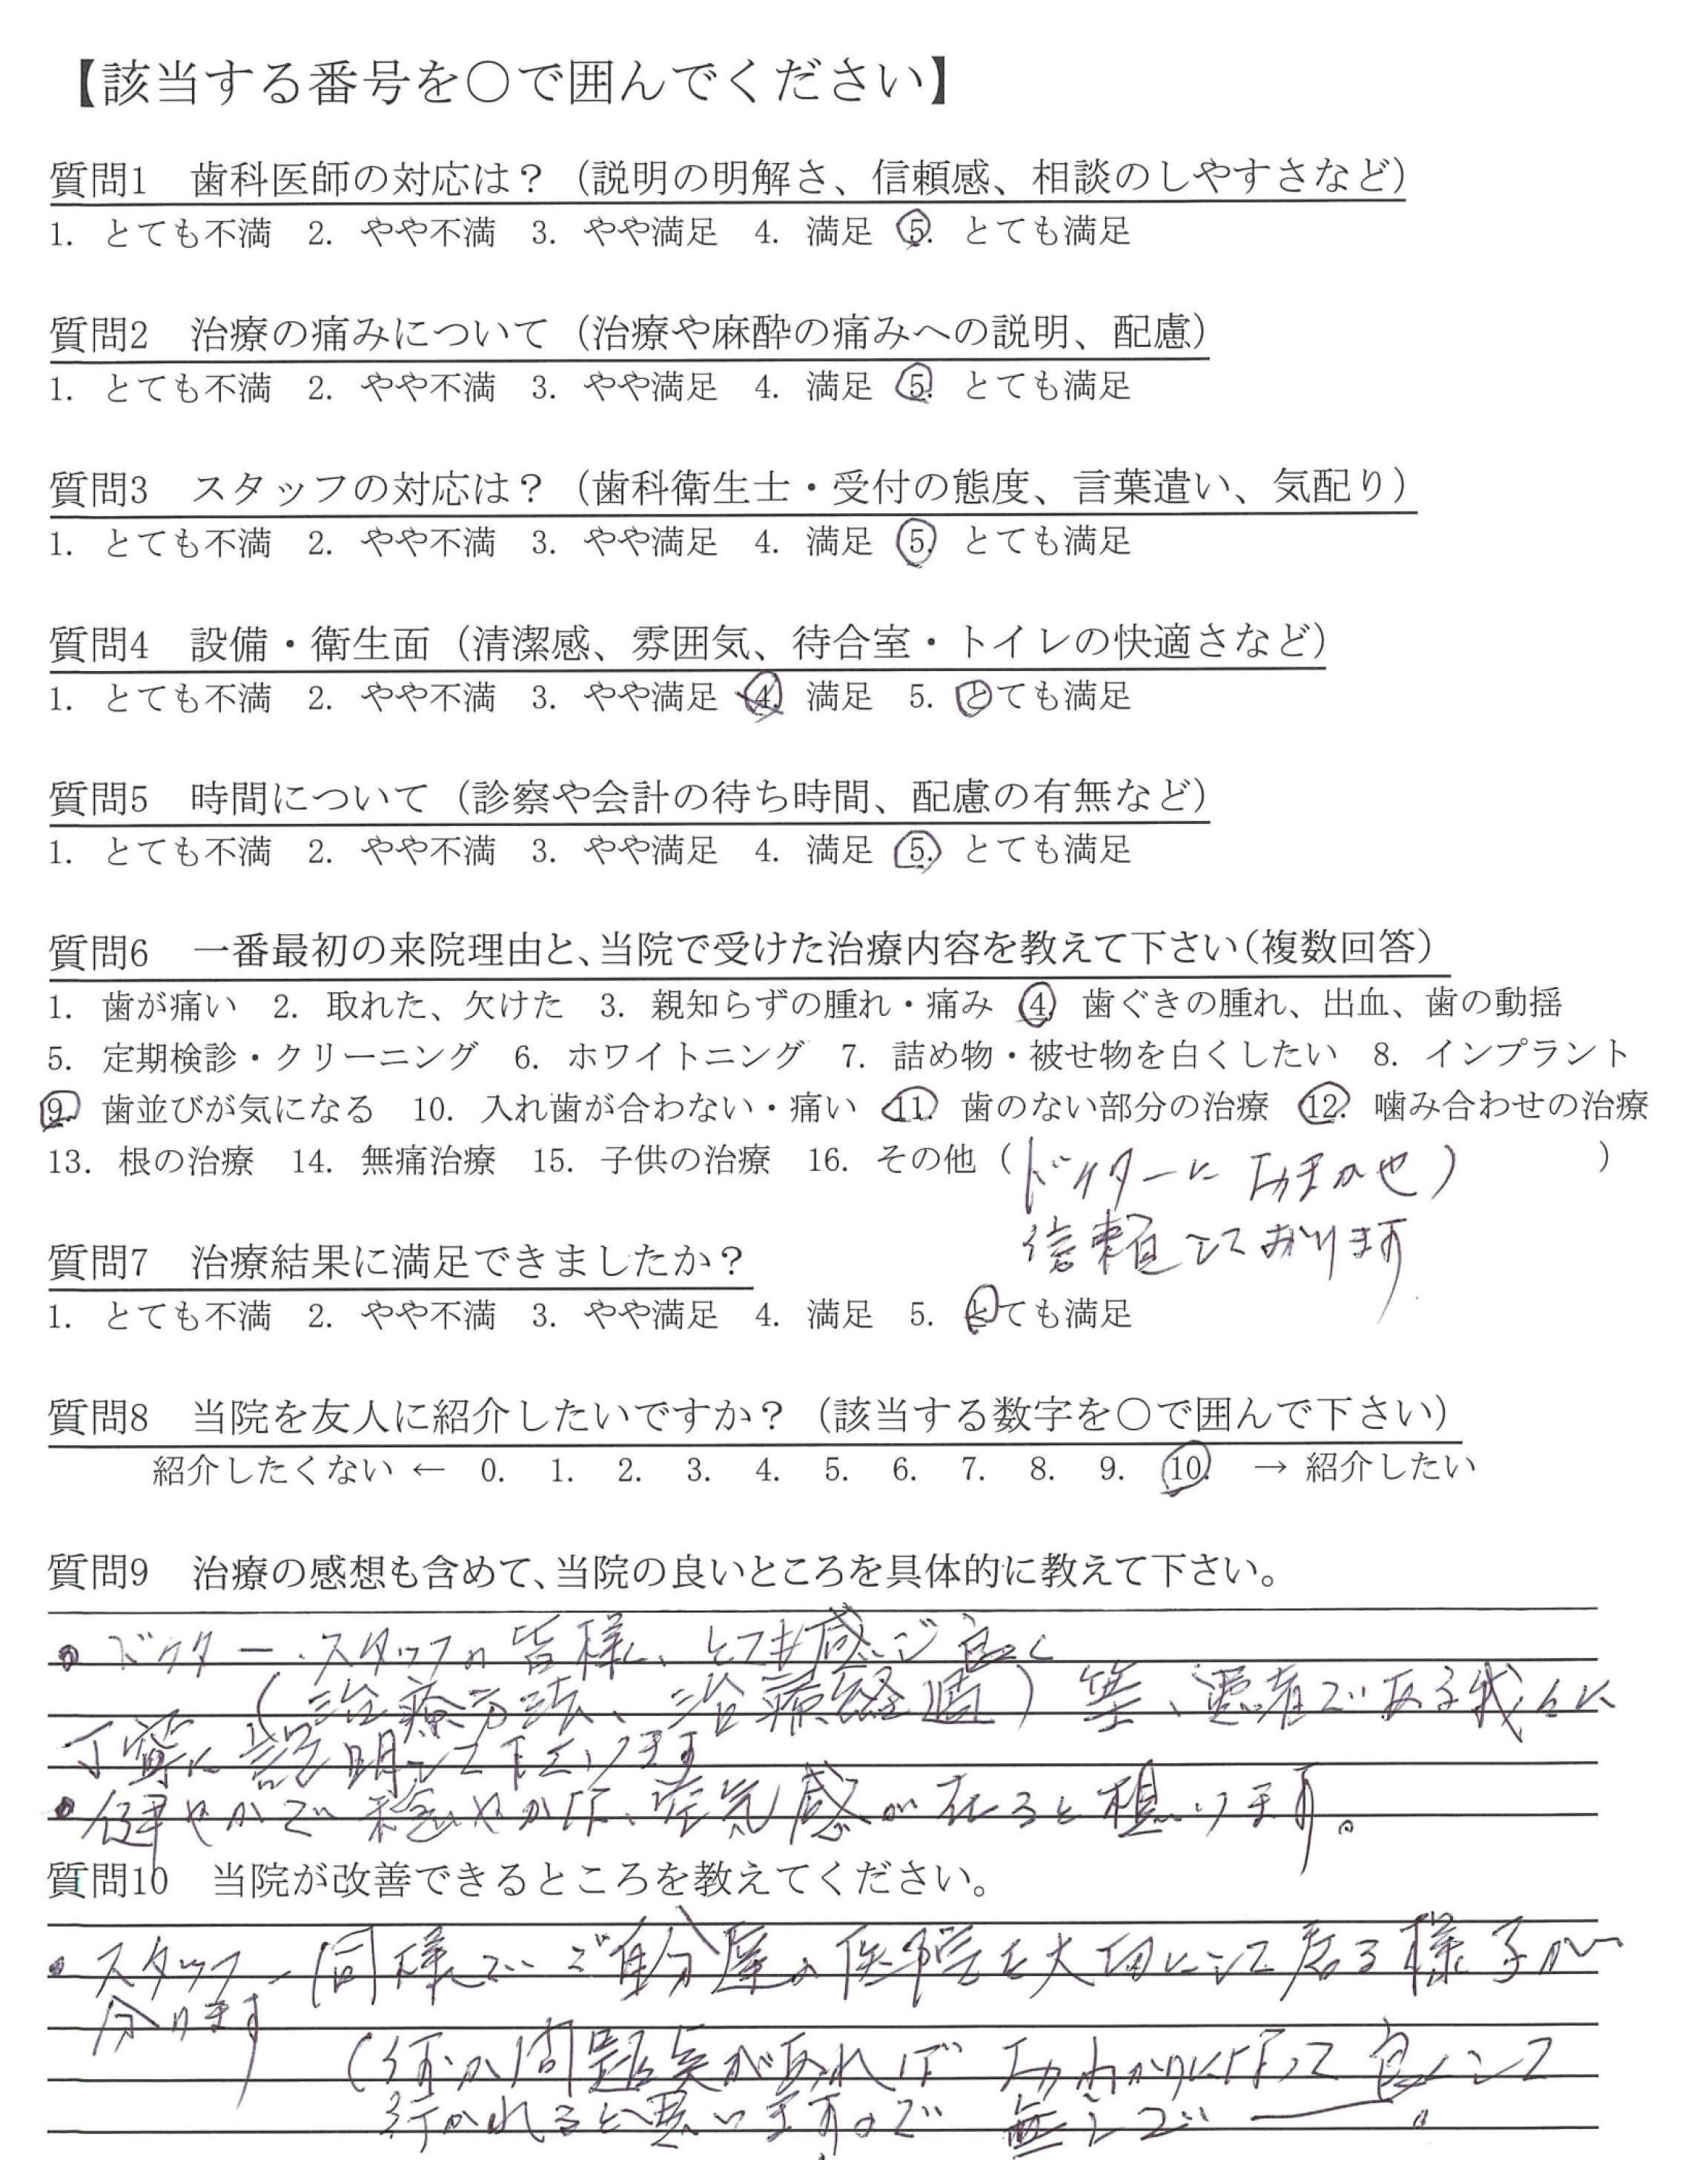 【該当する番号を○で囲んでください】
質問1 歯科医師の対応は？（説明の明解さ、信頼感、相談のしやすさなど）
1. とても不満 2. やや不満 3. やや満足 4. 満足 5. とても満足
質問2 治療の痛みについて（治療や麻酔の痛みへの説明、配慮）
1. とても不満 2. やや不満 3. やや満足 4. 満足 5. とても満足
質問3 スタッフの対応は？（歯科衛生士・受付の態度、言葉遣い、気配り）
1. とても不満 2. やや不満 3. やや満足 4. 満足 5. とても満足
質問4 設備・衛生面（清潔感、雰囲気、待合室・トイレの快適さなど）
1. とても不満 2. やや不満 3. やや満足 4. 満足 5. とても満足
質問5 時間について（診察や会計の待ち時間、配慮の有無など）
1. とても不満 2. やや不満 3. やや満足 4. 満足 5. とても満足
質問6 一番最初の来院理由と、当院で受けた治療内容を教えて下さい（複数回答）
1. 歯が痛い 2. 取れた、欠けた 3. 親知らずの腫れ・痛み 4. 歯ぐきの腫れ、出血、歯の動揺
5. 定期検診・クリーニング 6. ホワイトニング 7. 詰め物・被せ物を白くしたい 8. インプラント
9. 歯並びが気になる 10. 入れ歯が合わない・痛い 11. 歯のない部分の治療 12. 噛み合わせの治療
13. 根の治療 14. 無痛治療 15. 子供の治療 16. その他（ドクターにおまかせ））
信頼しております
質問7 治療結果に満足できましたか？
1. とても不満 2. やや不満 3. やや満足 4. 満足 5. とても満足
質問8 当院を友人に紹介したいですか？（該当する数字を○で囲んで下さい）
紹介したくない ← 0. 1. 2. 3. 4. 5. 6. 7. 8. 9. 10. → 紹介したい
質問9 治療の感想も含めて、当院の良いところを具体的に教えて下さい。
・ドクター、スタッフの皆様、とても感じ良く
（治療方法、治療経過）等、患者である我々に
丁寧に説明して下さいます
・健やかで穏やかな、空気感が在ると想います。
質問10 当院が改善できるところを教えてください。
・スタッフ一同様で、ご自分達の医院を大切にして居る様子が
分ります
（何か問題点があれば おわかりになって 良くして
行かれると思いますので 無しで